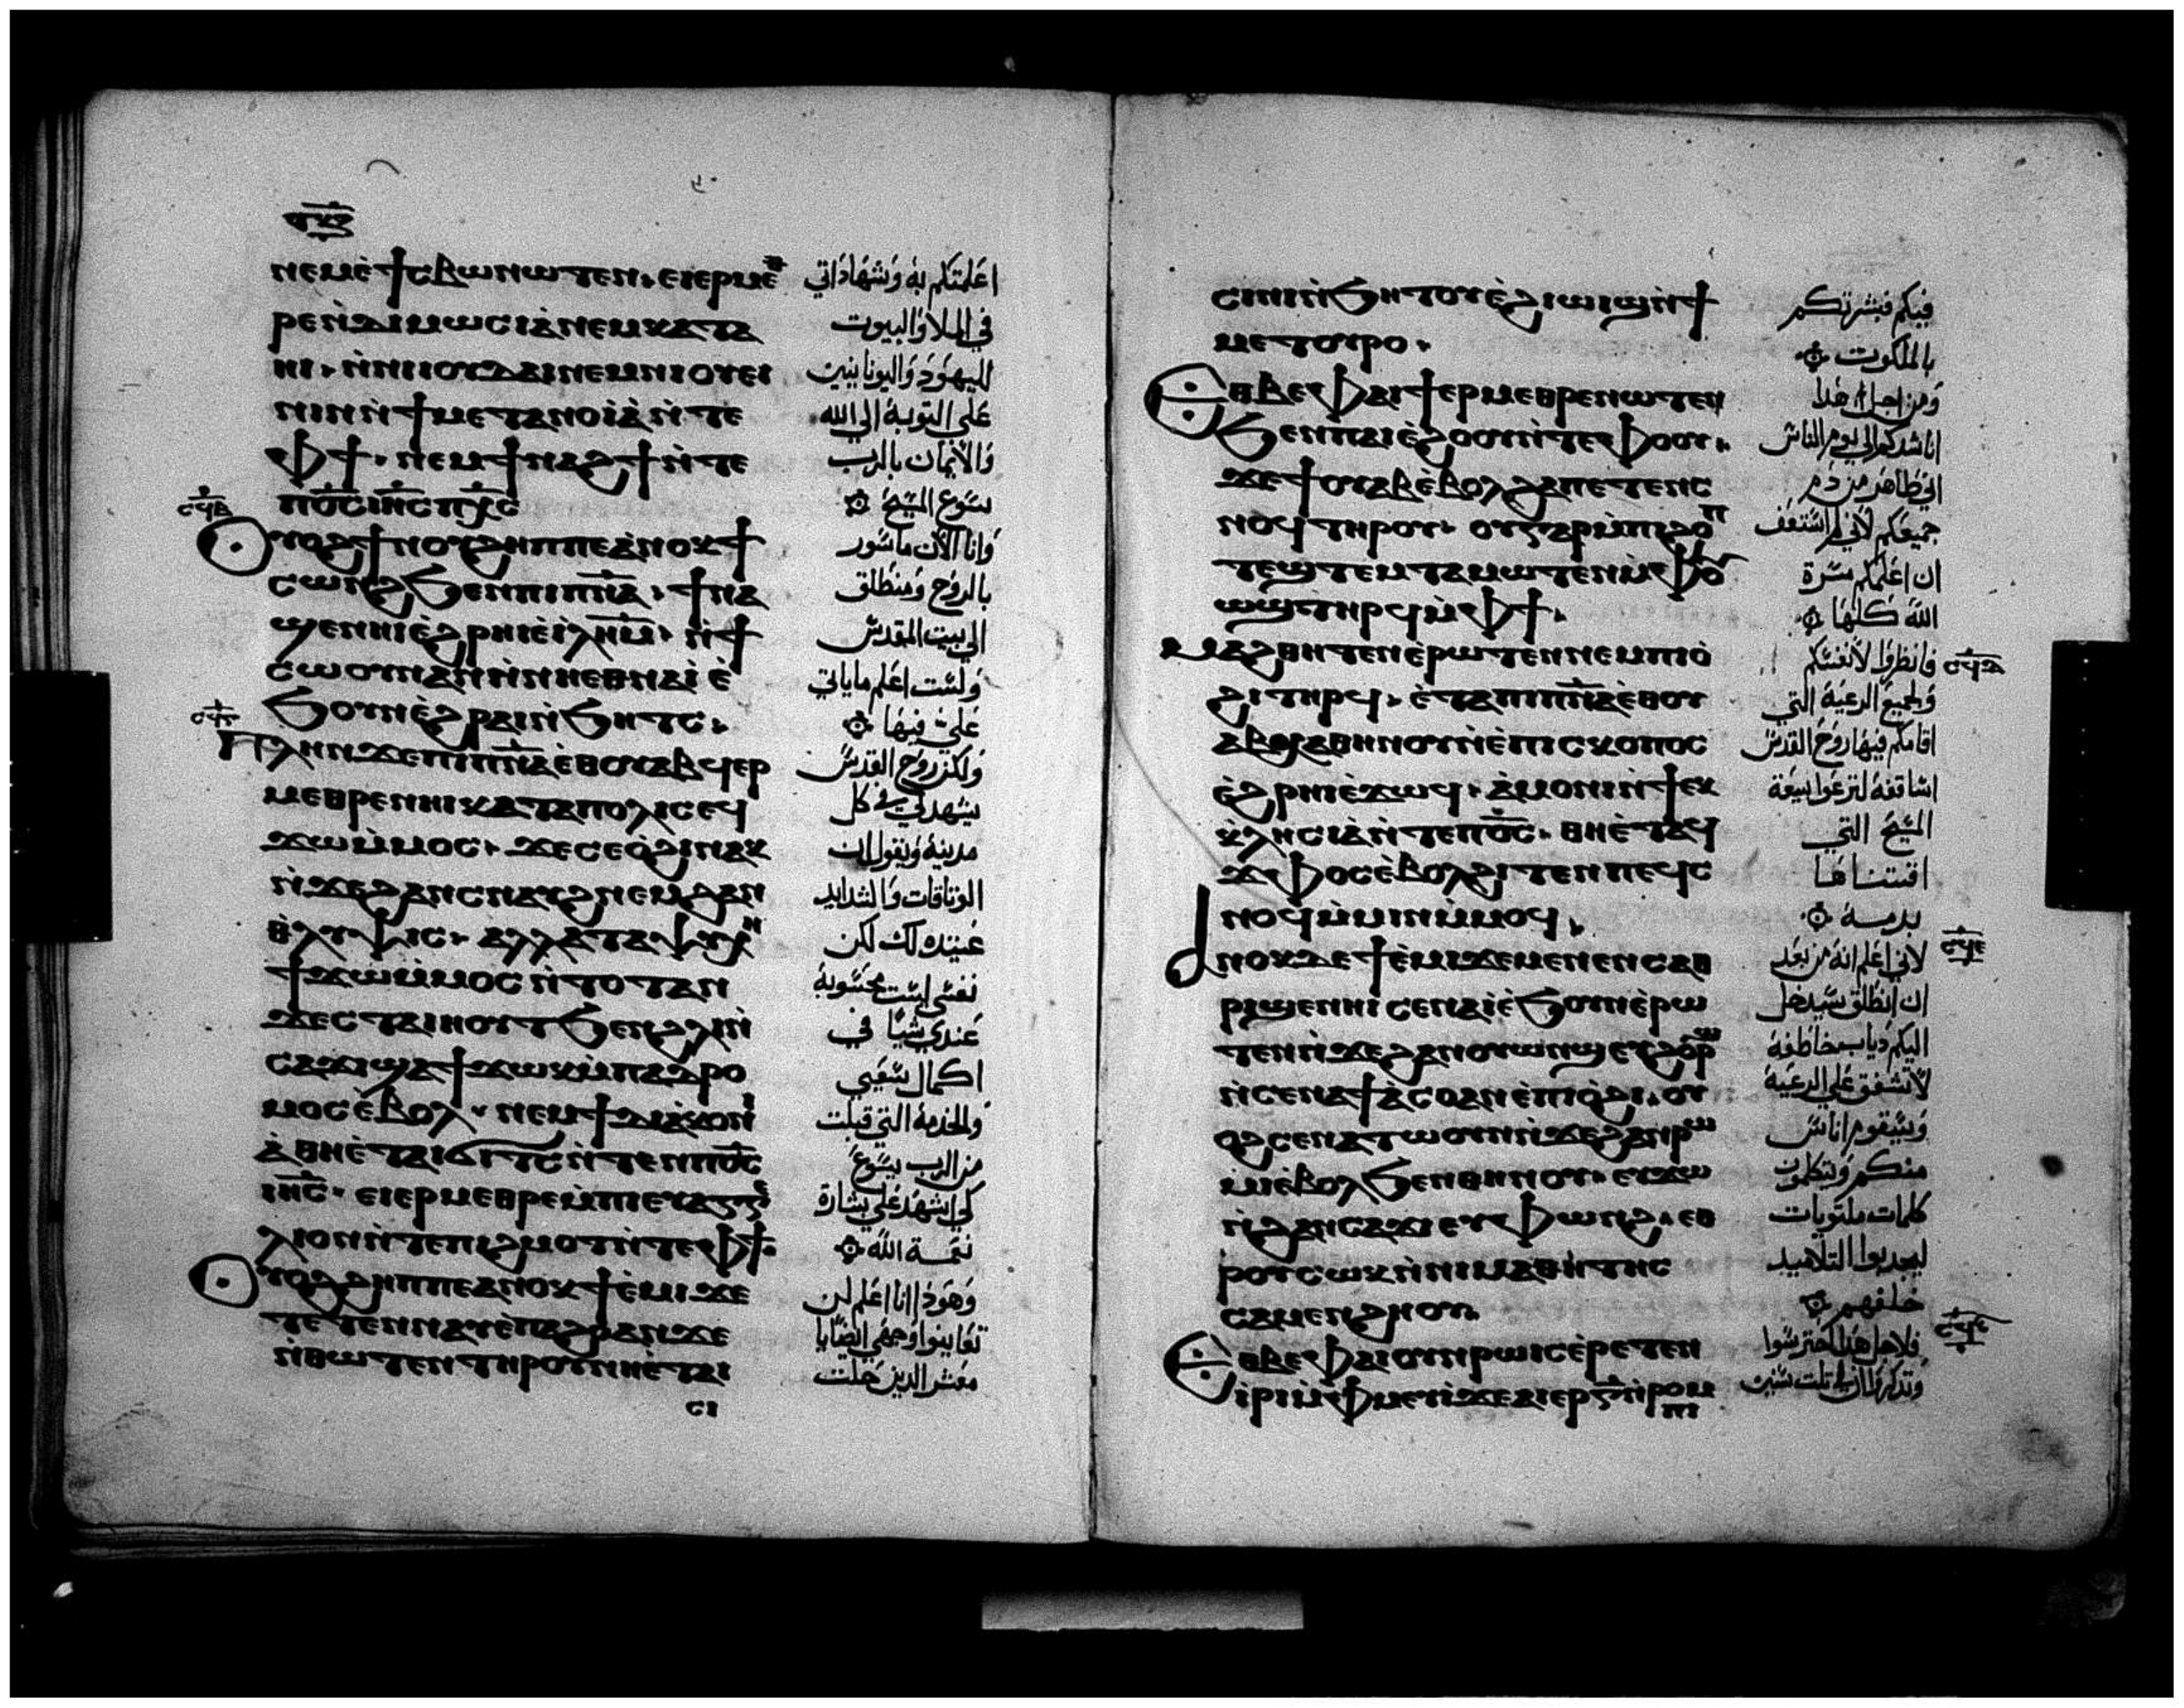 ⲛⲉⲙⲉ̀ϯⲥⲃⲱⲛⲱⲧⲉⲛ· ⲉⲓⲉⲣⲙⲉⲑ
ⲣⲉⲛ̀ⲇⲓⲙⲱⲥⲓⲁ̀ⲛⲉⲙⲕⲁⲧⲁ
ⲏⲓ· ⲛ̀ⲛⲓⲓⲟⲩⲇⲁⲓⲛⲉⲙⲛⲓⲟⲩⲉⲓ
ⲛⲓⲛⲛ̀ϯⲙⲉⲧⲁⲛⲟⲓⲁ̀ⲛ̀ⲧⲉ
ⲫϯ· ⲛⲉⲙϯⲛⲁϩϯⲛ̀ⲧⲉ
ⲡⲟ̅ⲥ̅ⲓⲏ̅ⲥ̅ⲡⲭ̅ⲥ̅
Ⲟⲩⲟϩϯⲛⲟⲩϩⲏⲡⲡⲉⲁ̀ⲛⲟⲕϯ
ⲥⲱⲛϩϧⲉⲛⲡⲓⲡⲛ̅ⲁ̅· ϯⲛⲁ
ϣⲉⲛⲏⲓⲉ̀ϩⲣⲏⲓⲉ̀ⲓ̀ⲗⲏ̅ⲙ̅· ⲛ̀ϯ
ⲥⲱⲟⲩⲛⲁⲛⲛ̀ⲛⲏⲉⲑⲛⲁⲓ̀ⲉ̀
ϧⲟⲩⲛⲉ̀ϩⲣⲁⲓⲛ̀ϧⲏⲧⲥ·
Ⲡⲗⲏⲛϫⲉⲡⲓⲡⲛ̅ⲁ̅ⲉ̀ⲑⲟⲩⲁⲃϥⲉⲣ
ⲙⲉⲑⲣⲉⲛⲏⲓⲕⲁⲧⲁⲡⲟⲗⲓⲥⲉϥ
ϫⲱⲙ̀ⲙⲟⲥ· ϫⲉⲥⲉⲟ̀ϩⲓⲛⲁⲕ
ⲛ̀ϫⲉϩⲁⲛⲥⲛⲁⲩϩⲛⲉⲙϩⲁⲛ
ⲑ̀ⲗⲩⲯⲓⲥ· ⲁⲗⲗⲁⲧⲁⲯⲩⲭⲏ
ϯϫⲱⲙ̀ⲙⲟⲥⲛ̀ⲧⲟⲧⲁⲛ
ϫⲉⲥⲧⲁⲓⲏⲟⲩⲧϧⲉⲛϩⲗⲓⲛ̀
ⲥⲁϫⲓϣⲁϯϫⲱⲕⲙ̀ⲡⲁⲇⲣⲟ
ⲙⲟⲥⲉ̀ⲃⲟⲗ· ⲛⲉⲙϯⲇⲓⲁ̀ⲕⲟⲛⲓ
ⲁ̀ⲑⲏⲉ̀ⲧⲁⲓϭⲓⲧⲥⲛ̀ⲧⲉⲛⲡⲟ̅ⲥ̅
ⲓⲏ̅ⲥ̅· ⲉⲓⲉⲣⲙⲉⲑⲣⲉⲙ̀ⲡⲓⲉⲩⲁⲅⲅⲉ
ⲗⲓⲟⲛⲛ̀ⲧⲉⲡⲓϩⲙⲟⲧⲛ̀ⲧⲉⲫϯ·
Ⲟⲩⲟϩϩⲏⲡⲡⲉⲁⲛⲟⲕϯⲉ̀ⲙⲓϫⲉ
ⲧⲉⲧⲉⲛⲛⲁⲩⲉ̀ⲡⲁϩⲣⲁⲛϫⲉ
ⲛ̀ⲑⲱⲧⲉⲛⲧⲏⲣⲟⲩⲛⲏⲉ̀ⲧⲁⲓ
ⲥⲓ
اعلمتكم به وشهاداتي
في الملا والبيوت
لليهود واليونانيين
علي التوبة الي الله
والايمان بالرب
يسوع المسيح
وانا الان ماسور
بالروح ومنطلق
الي بيت المقدس
ولست اعلم ماياتي
علي فيها
ولكن روح القدس
يشهد لي في كل
مدينة ويقول ان
الوثاقات والشدايد
عتيده لك لكن
نفسي ليست محسوبة
عندي شيا في
اكمال سعيي
والخدمة التي قبلت
من الرب يسوع
لكي اشهد علي بشارة
نعمة الله
وهوذا انا اعلم لن
تعاينوا وجهي ايضايا
معشر الذين خلت
ⲥⲓⲛⲓⲛ̀ϧⲏⲧⲟⲩⲉ̀ϩⲓⲱⲓϣⲛ̀ϯ
ⲙⲉⲧⲟⲩⲣⲟ·
Ⲉⲑⲃⲉⲫⲁⲓϯⲉⲣⲙⲉⲑⲣⲉⲛⲱⲧⲉⲛ
ϧⲉⲛⲡⲁⲓⲉ̀ϩⲟⲟⲩⲛ̀ⲧⲉⲫⲟⲟⲩ·
ϫⲉϯⲟⲩⲁⲃⲉ̀ⲃⲟⲗϩⲁⲡⲉⲧⲉⲛⲥ
ⲛⲟϥⲧⲏⲣⲟⲩ· ⲟⲩⲅⲁⲣⲙ̀ⲡⲓϩⲟⲡ
ⲧⲉϣⲧⲉⲙⲧⲁⲙⲱⲧⲉⲛⲙ̀ⲫⲟⲩ
ⲱϣⲧⲏⲣϥⲙ̀ⲫϯ·
Ⲙⲁϩⲑⲏⲧⲉⲛⲉ̀ⲣⲱⲧⲉⲛⲛⲉⲙⲡⲓⲟ̀
ϩⲓⲧⲏⲣϥ· ⲉ̀ⲧⲁⲡⲓⲡⲛ̅ⲁ̅ⲉ̀ⲑⲟⲩ
ⲁⲃⲭⲁⲑⲏⲛⲟⲩⲛ̀ⲉ̀ⲡⲓⲥⲕⲟⲡⲟⲥ
ⲉ̀ϩⲣⲏⲓⲉ̀ϫⲱϥ· ⲁ̀ⲙⲟⲛⲓⲛ̀ϯⲉⲕ
ⲕ̀ⲗⲏⲥⲓⲁ̀ⲛ̀ⲧⲉⲡⲟ̅ⲥ̅· ⲑⲏⲉ̀ⲧⲁϥ
ϫ̀ⲫⲟⲥⲉ̀ⲃⲟⲗϩⲓⲧⲉⲛⲡⲉϥⲥ
ⲛⲟϥⲙ̀ⲙⲓⲛⲙ̀ⲙⲟϥ·
Ⲁⲛⲟⲕⲇⲉϯⲉ̀ⲙⲓϫⲉⲙⲉⲛⲉⲛⲥⲁⲑ
ⲣⲓϣⲉⲛⲏⲓⲥⲉⲛⲁⲓ̀ⲉ̀ϧⲟⲩⲛⲉ̀ⲣⲱ
ⲧⲉⲛⲛ̀ϫⲉϩⲁⲛⲟⲩⲱⲛϣⲉⲩϩⲟⲣϣ
ⲛ̀ⲥⲉⲛⲁϯⲁ̀ⲥⲟⲁⲛⲉ̀ⲡⲓⲟ̀ϩⲓ· ⲟⲩ
ⲟϩⲥⲉⲛⲁⲧⲱⲟⲩⲛⲛ̀ϫⲉϩⲁⲛⲣⲱ
ⲙⲓⲉ̀ⲃⲟⲗϧⲉⲛⲑⲏⲛⲟⲩ· ⲉⲩϫⲱ
ⲛ̀ϩⲁⲛⲥⲁϫⲓⲉⲩⲫⲱⲛϩ· ⲉⲑ
ⲣⲟⲩⲥⲱⲕⲛ̀ⲛⲓⲙⲁⲑⲏⲧⲏⲥ
ⲥⲁⲙⲉⲛϩⲏⲟⲩ
Ⲉⲑⲃⲉⲫⲁⲓⲟⲩⲛⲣⲱⲓⲥⲉ̀ⲣⲉⲧⲉⲛ
ⲓⲣⲓⲙ̀ⲫⲙⲉⲩⲓϫⲉⲁⲓⲉⲣⲅ̅ⲛ̀ⲣⲟⲙ
ⲡⲓ
فيكم فبشرتكم
بالملكوت
ومن اجل هذا
اناشدكم الي يوم الناس
اني طاهر من دم
جميعكم لاني لم استعف
ان اعلمكم مسرة
الله كلها
فانظروا لانفسكم
ولجميع الرعية التي
اقامكم فيها روح القدس
اساقفة لترعوا بيعة
المسيح التي
اقتناها
بدمه
لاني اعلم انه من بعد
ان انطلق سيدخل
اليكم دياب خاطفة
لاتشفق علي الرعية
وسيقوم اناس
منكم ويتكلمون
كلمات ملتويات
ليجدبوا التلاميد
خلفهم
فلاجل هذا احترسوا
وتذكروا اني تلت سنين